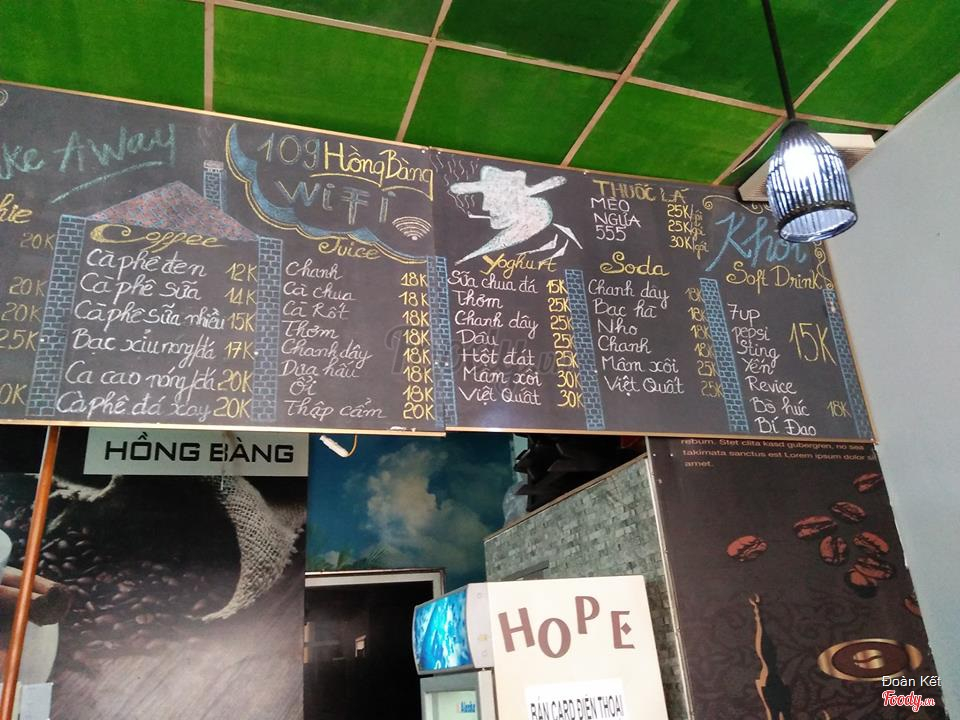 ke AWay
109 Hồng Bàng
WiFi
hie
20K
20K
20K
25K
0K
Coffee
Cà phê đen 12K
Cà phê Sữa 14K
Cà phê Sữa nhiều 15K
Bạc xỉu nóng/đá 17K
Ca cao nóng/đá 20K
Cà phê đá xay 20K
Juice
Chanh 18K
Cà chua 18K
Cà Rốt 18K
Thơm 18K
Chanh dây 18K
Dưa hấu 18K
Ổi 18K
Thập cẩm 20K
Yoghurt
Sữa chua đá 15K
Thơm 25K
Chanh dây 25K
Dâu 25K
Hột đát 25K
Mâm xôi 30K
Việt Quất 30K
THUỐC LÁ
MÈO 25K/gói
NGỰA 25K/gói
555 30K/gói
Soda
Chanh dây 18K
Bạc hà 18K
Nho 18K
Chanh 18K
Mâm xôi 25K
Việt Quất 25K
Khói
Soft Drink
7up
pepsi
Sting
Yến
Revice
15K
Bò húc 18K
Bí Đao
HỒNG BÀNG
rebum. Stet clita kasd gubergren, no sea
takimata sanctus est Lorem ipsum dolor si
amet.
HOPE
BÁN CARD ĐIỆN THOẠI
Alaska
Đoàn Kết
Foody.vn